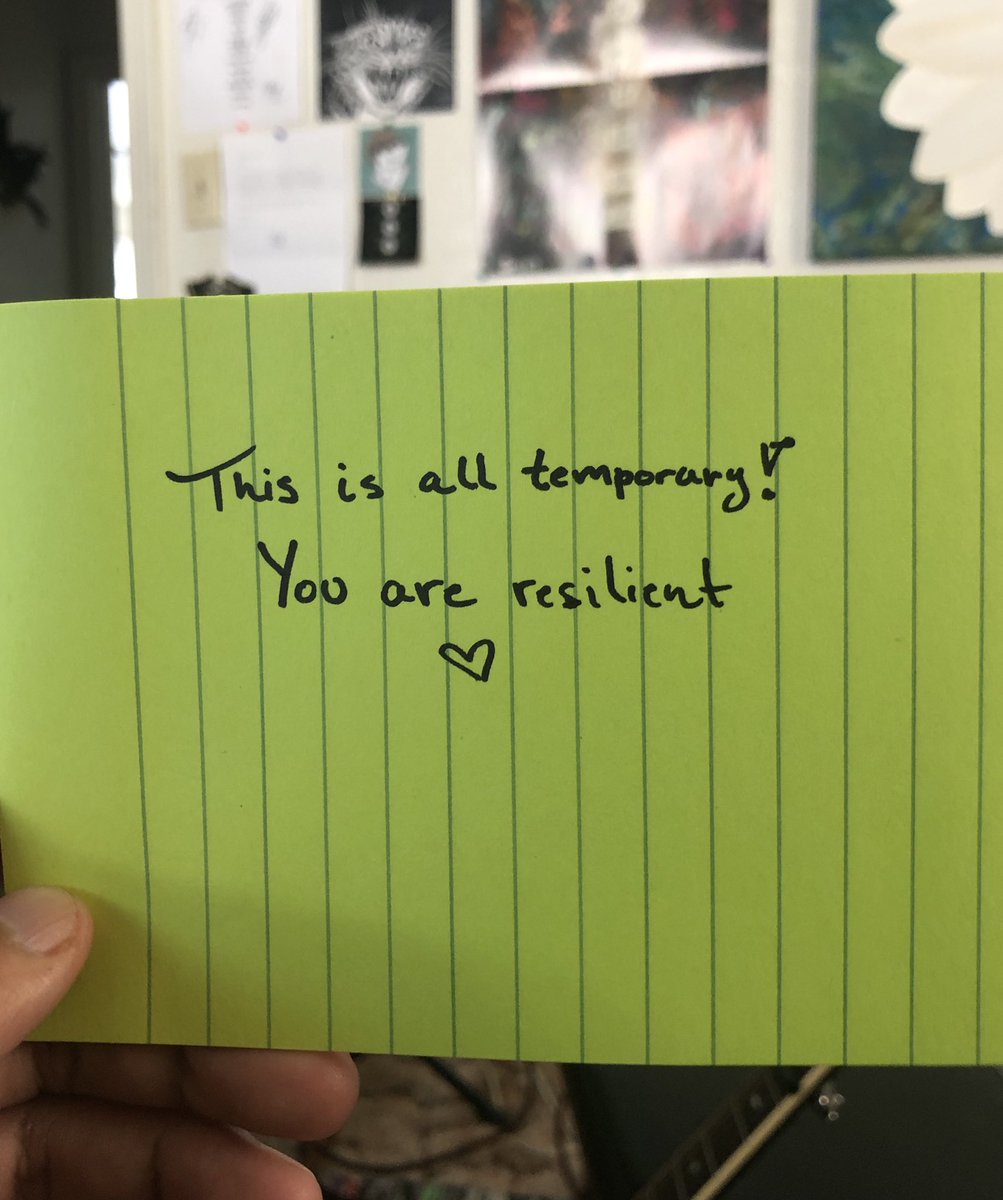 This is all temporary!
You are resilient
♡